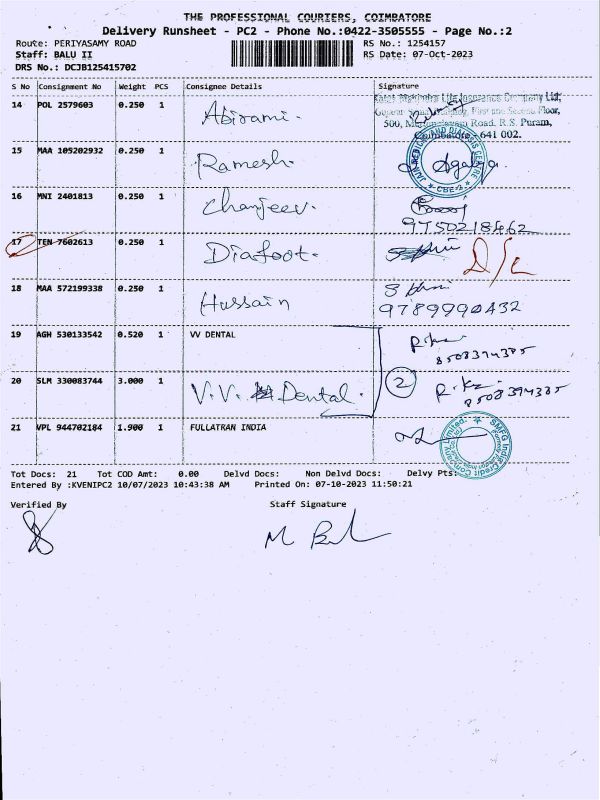 THE PROFESSIONAL COURIERS, COIMBATORE
Delivery Runsheet - PC2 - Phone No.:0422-3505555 - Page No.:2
Route: PERIYASAMY ROAD RS No.: 1254157
Staff: BALU II RS Date: 07-Oct-2023
DRS No.: DCJB125415702
S No Consignment No Weight PCS Consignee Details Signature
14 POL 2579603 0.250 1 Abirami.
Life Insurance Company Ltd,
First and Second Floor,
500, Road, R.S. Puram,
Coimbatore - 641 002.
15 MAA 105202932 0.250 1 Ramesh.
JAIN MEDICAL AND DIALYSIS CENTRE
CBE-2
16 MNI 2401813 0.250 1 Chanjeev.
9750218462
17 TEN 7602613 0.250 1 Diafoot. D/L
18 MAA 572199338 0.250 1 Hussain
9789990432
19 AGH 530133542 0.520 1 VV DENTAL
8508394385
20 SLM 330083744 3.000 1 V.V. Dental. 2
8508394385
21 VPL 944702184 1.900 1 FULLATRAN INDIA
SMFG India Credit Company Limited
Tot Docs: 21 Tot COD Amt: 0.00 Delvd Docs: Non Delvd Docs: Delvy Pts:
Entered By :KVENIPC2 10/07/2023 10:43:38 AM Printed On: 07-10-2023 11:50:21
Verified By Staff Signature